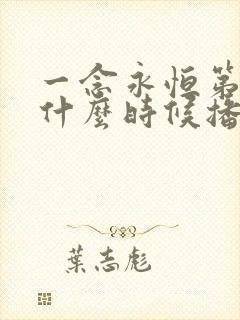 一念永恒第
什麼時候播
葉志彪